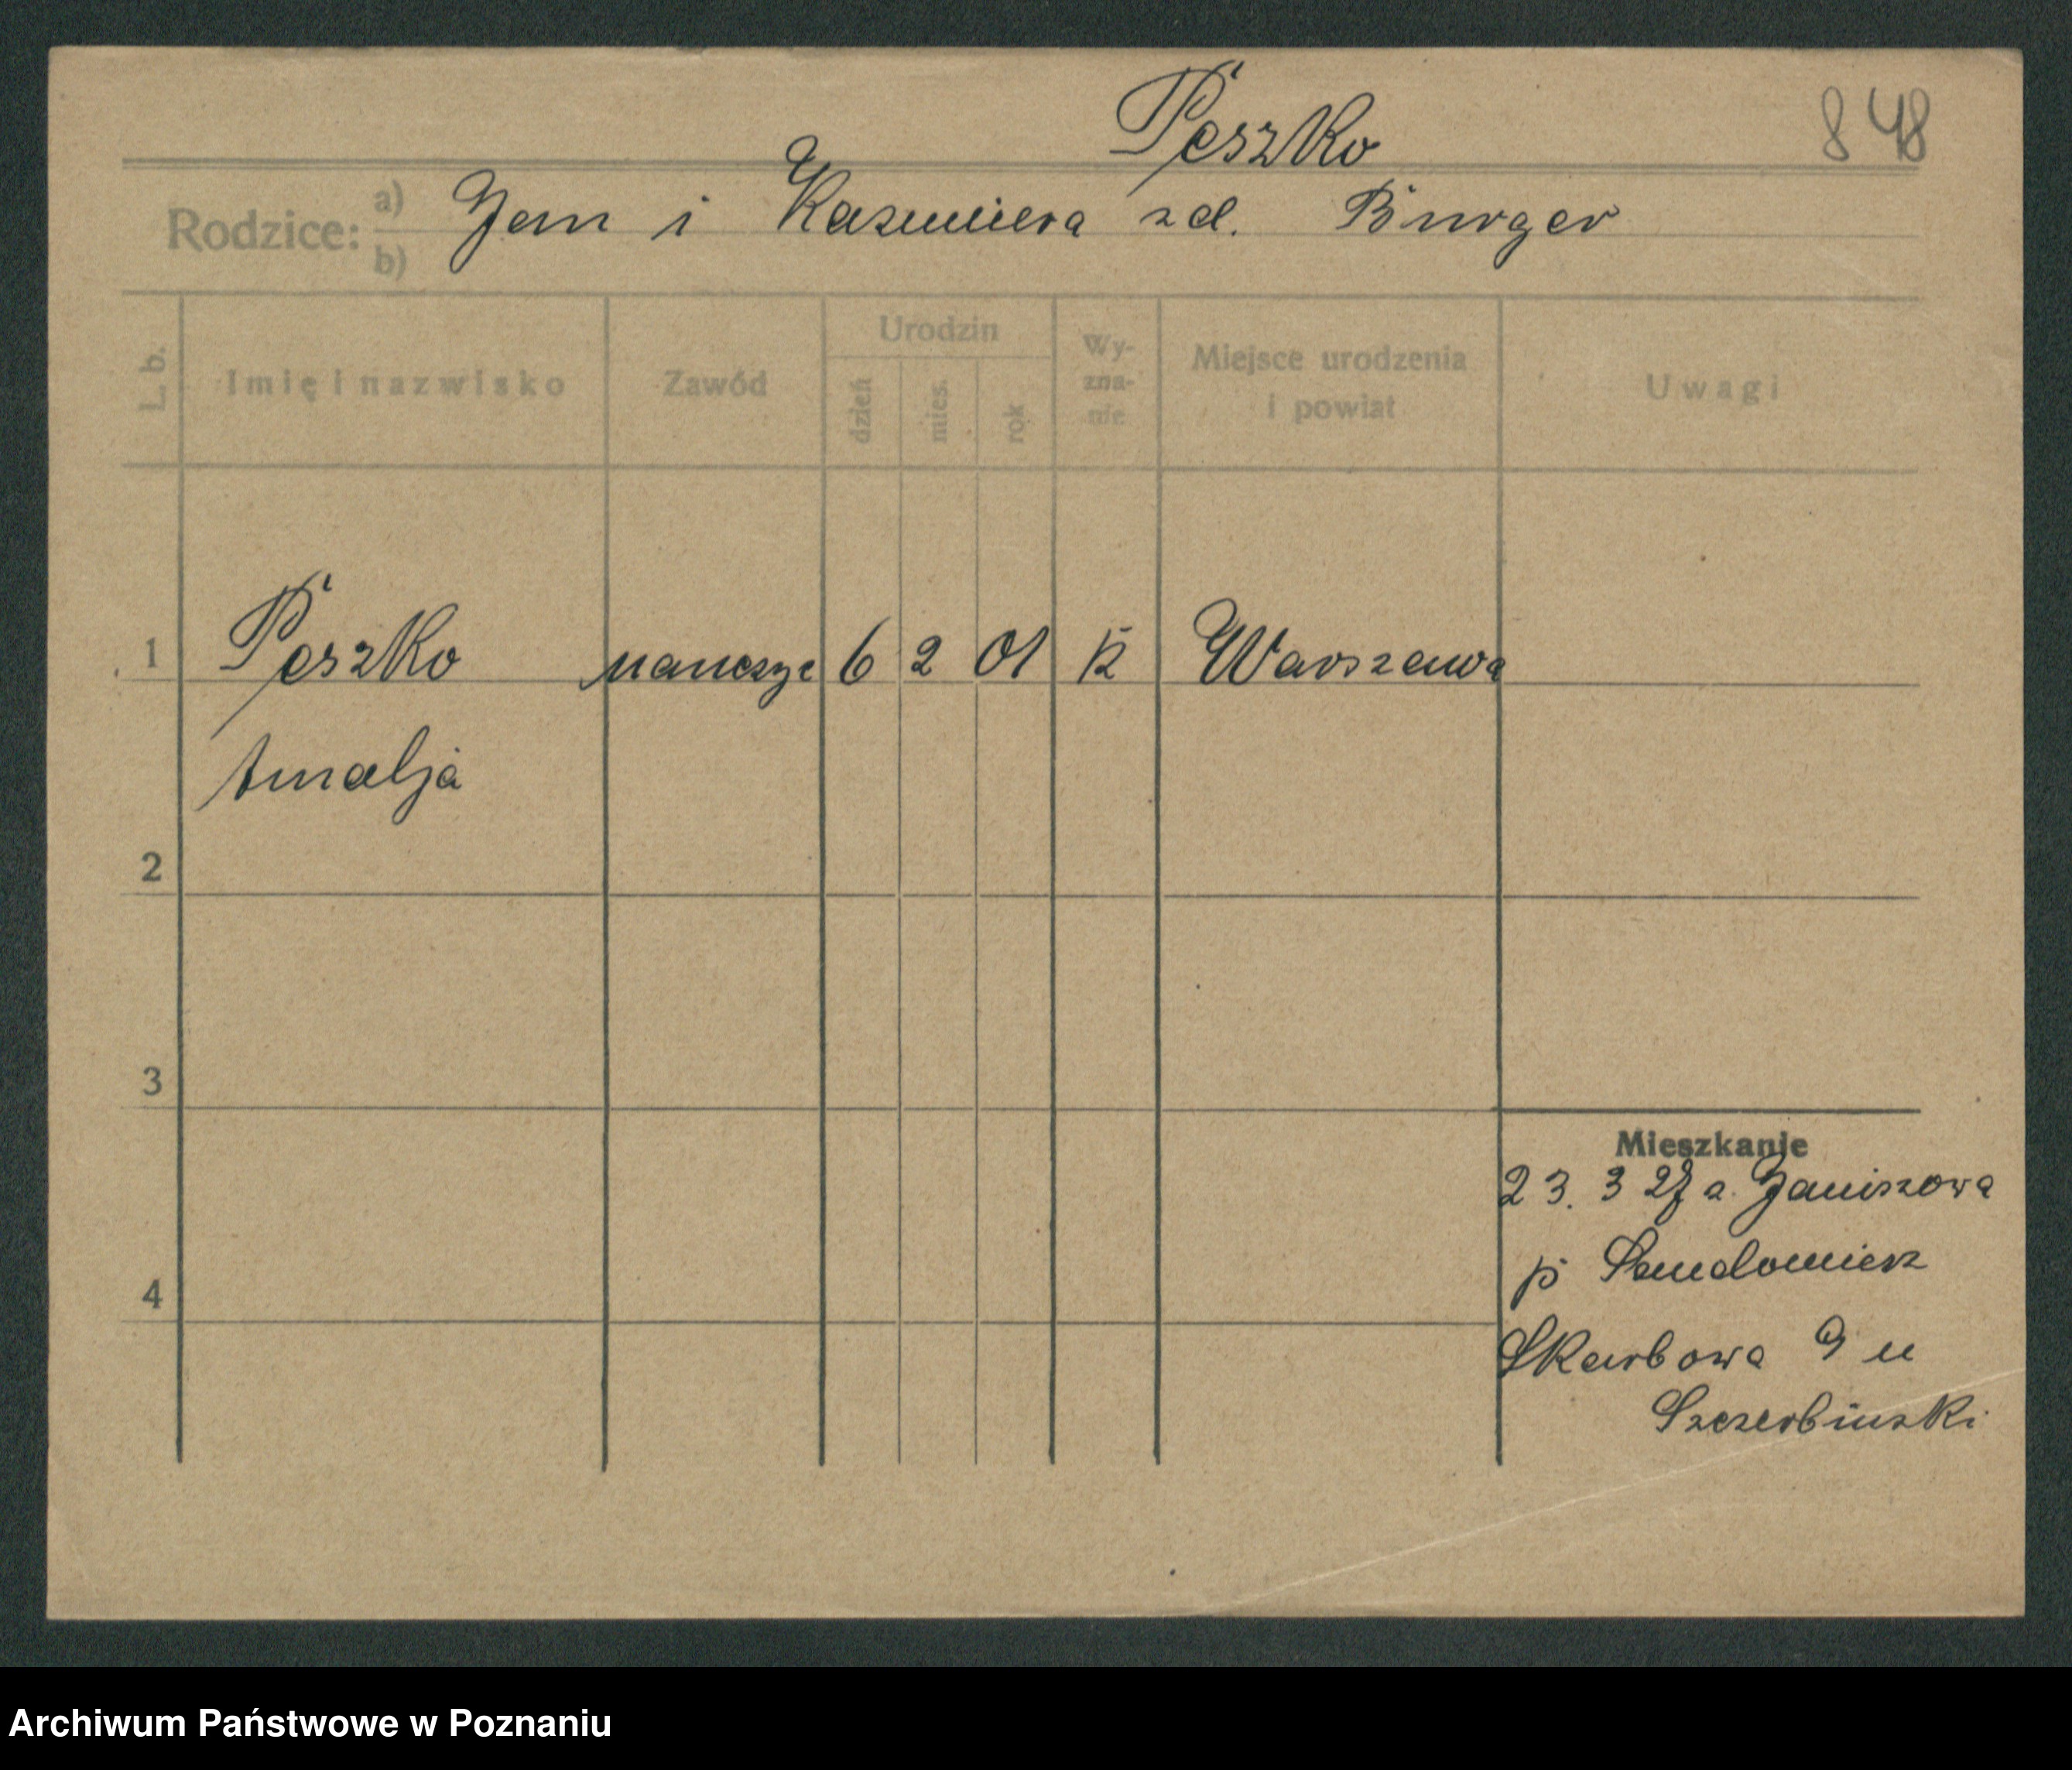 Peszko
848
Rodzice: a) Jan i Kazimiera zd. Burger
b)
L. b. Imię i nazwisko Zawód Urodzin dzień mies. rok Wy-zna-nie Miejsce urodzenia i powiat Uwagi
1 Peszko naucz. 6 2 01 K Warszawa
Amalja
2
3
Mieszkanie
23. 3 27 z Janiszowa
4 p Sandomierz
Skarbowa 9 u
Szczerbinski
Archiwum Państwowe w Poznaniu